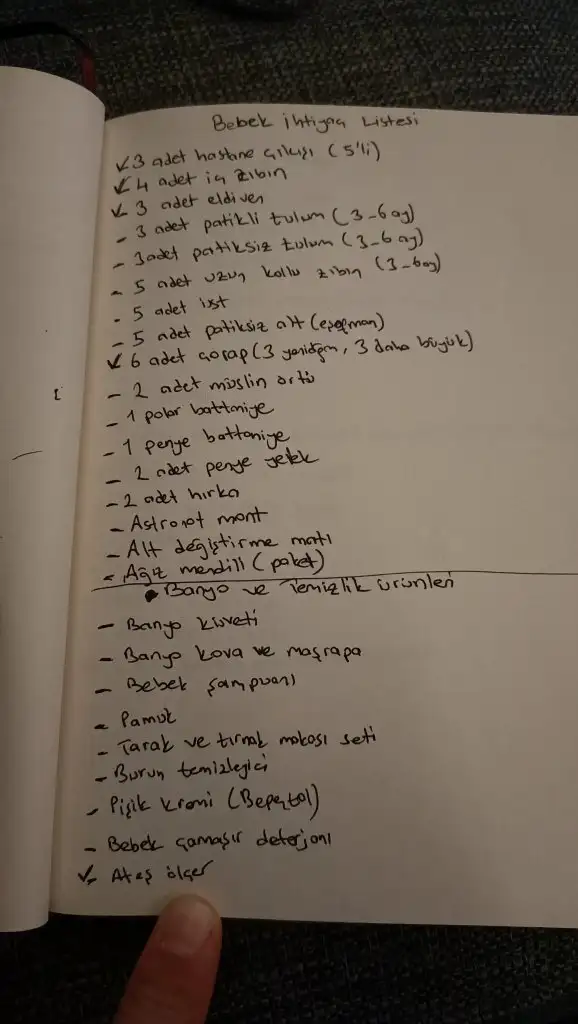 Bebek ihtiyaç Listesi
✓ 3 adet hastane çıkışı (5'li)
✓ 4 adet iç zıbın
✓ 3 adet eldiven
- 3 adet patikli tulum (3-6 ay)
- 3 adet patiksiz tulum (3-6 ay)
- 5 adet uzun kollu zıbın (3-6 ay)
- 5 adet üst
- 5 adet patiksiz alt (eşofman)
✓ 6 adet çorap (3 yenidoğan, 3 daha büyük)
- 2 adet müslin örtü
- 1 polar battaniye
- 1 penye battaniye
- 2 adet penye yelek
- 2 adet hırka
- Astronot mont
- Alt değiştirme matı
- Ağız mendili (paket)
• Banyo ve Temizlik ürünleri
- Banyo küveti
- Banyo kova ve maşrapa
- Bebek şampuanı
- Pamuk
- Tarak ve tırnak makası seti
- Burun temizleyici
- Pişik kremi (Bepantol)
- Bebek çamaşır deterjanı
✓- Ateş ölçer